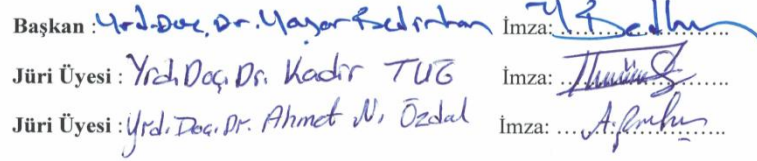 Başkan : Yrd.Doç.Dr. Yaşar Bedirhan İmza: ..................
Jüri Üyesi : Yrd. Doç. Dr. Kadir TUĞ İmza: ..................
Jüri Üyesi : Yrd. Doç. Dr. Ahmet N. Özdal İmza: ..................